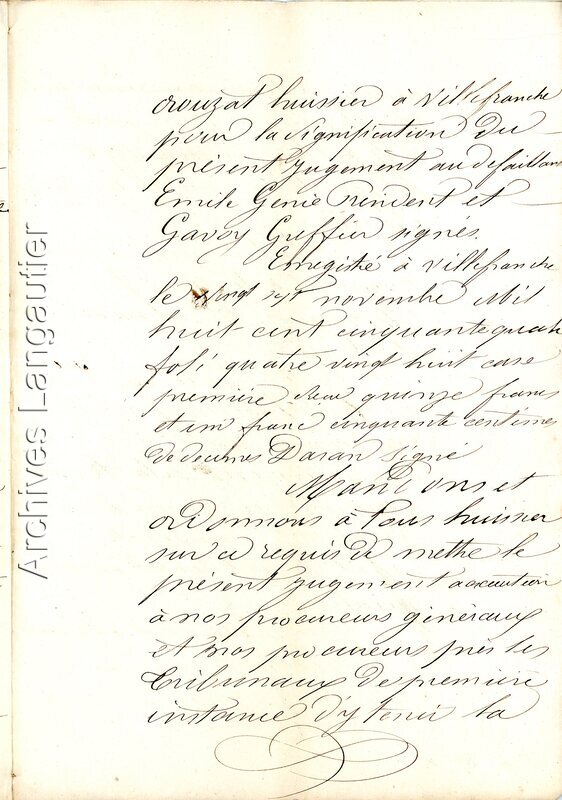 Crouzat huissier à Villefranche
pour la signification du
présent jugement au défaillant
Emile Genie Président et
Gavoy Greffier signés.
Enregistré à Villefranche
le vingt sept novembre Mil
huit cent cinquante quatre
folº quatre vingt huit case
première Reçu quinze francs
et un franc cinquante centimes
de décimes Daran signé
Mandons et
ordonnons à tous huissier
sur ce requis de mettre le
présent jugement a execution
à nos procureurs généraux
et nos procureurs près les
tribunaux de première
instance d'y tenir la
Archives Langautier